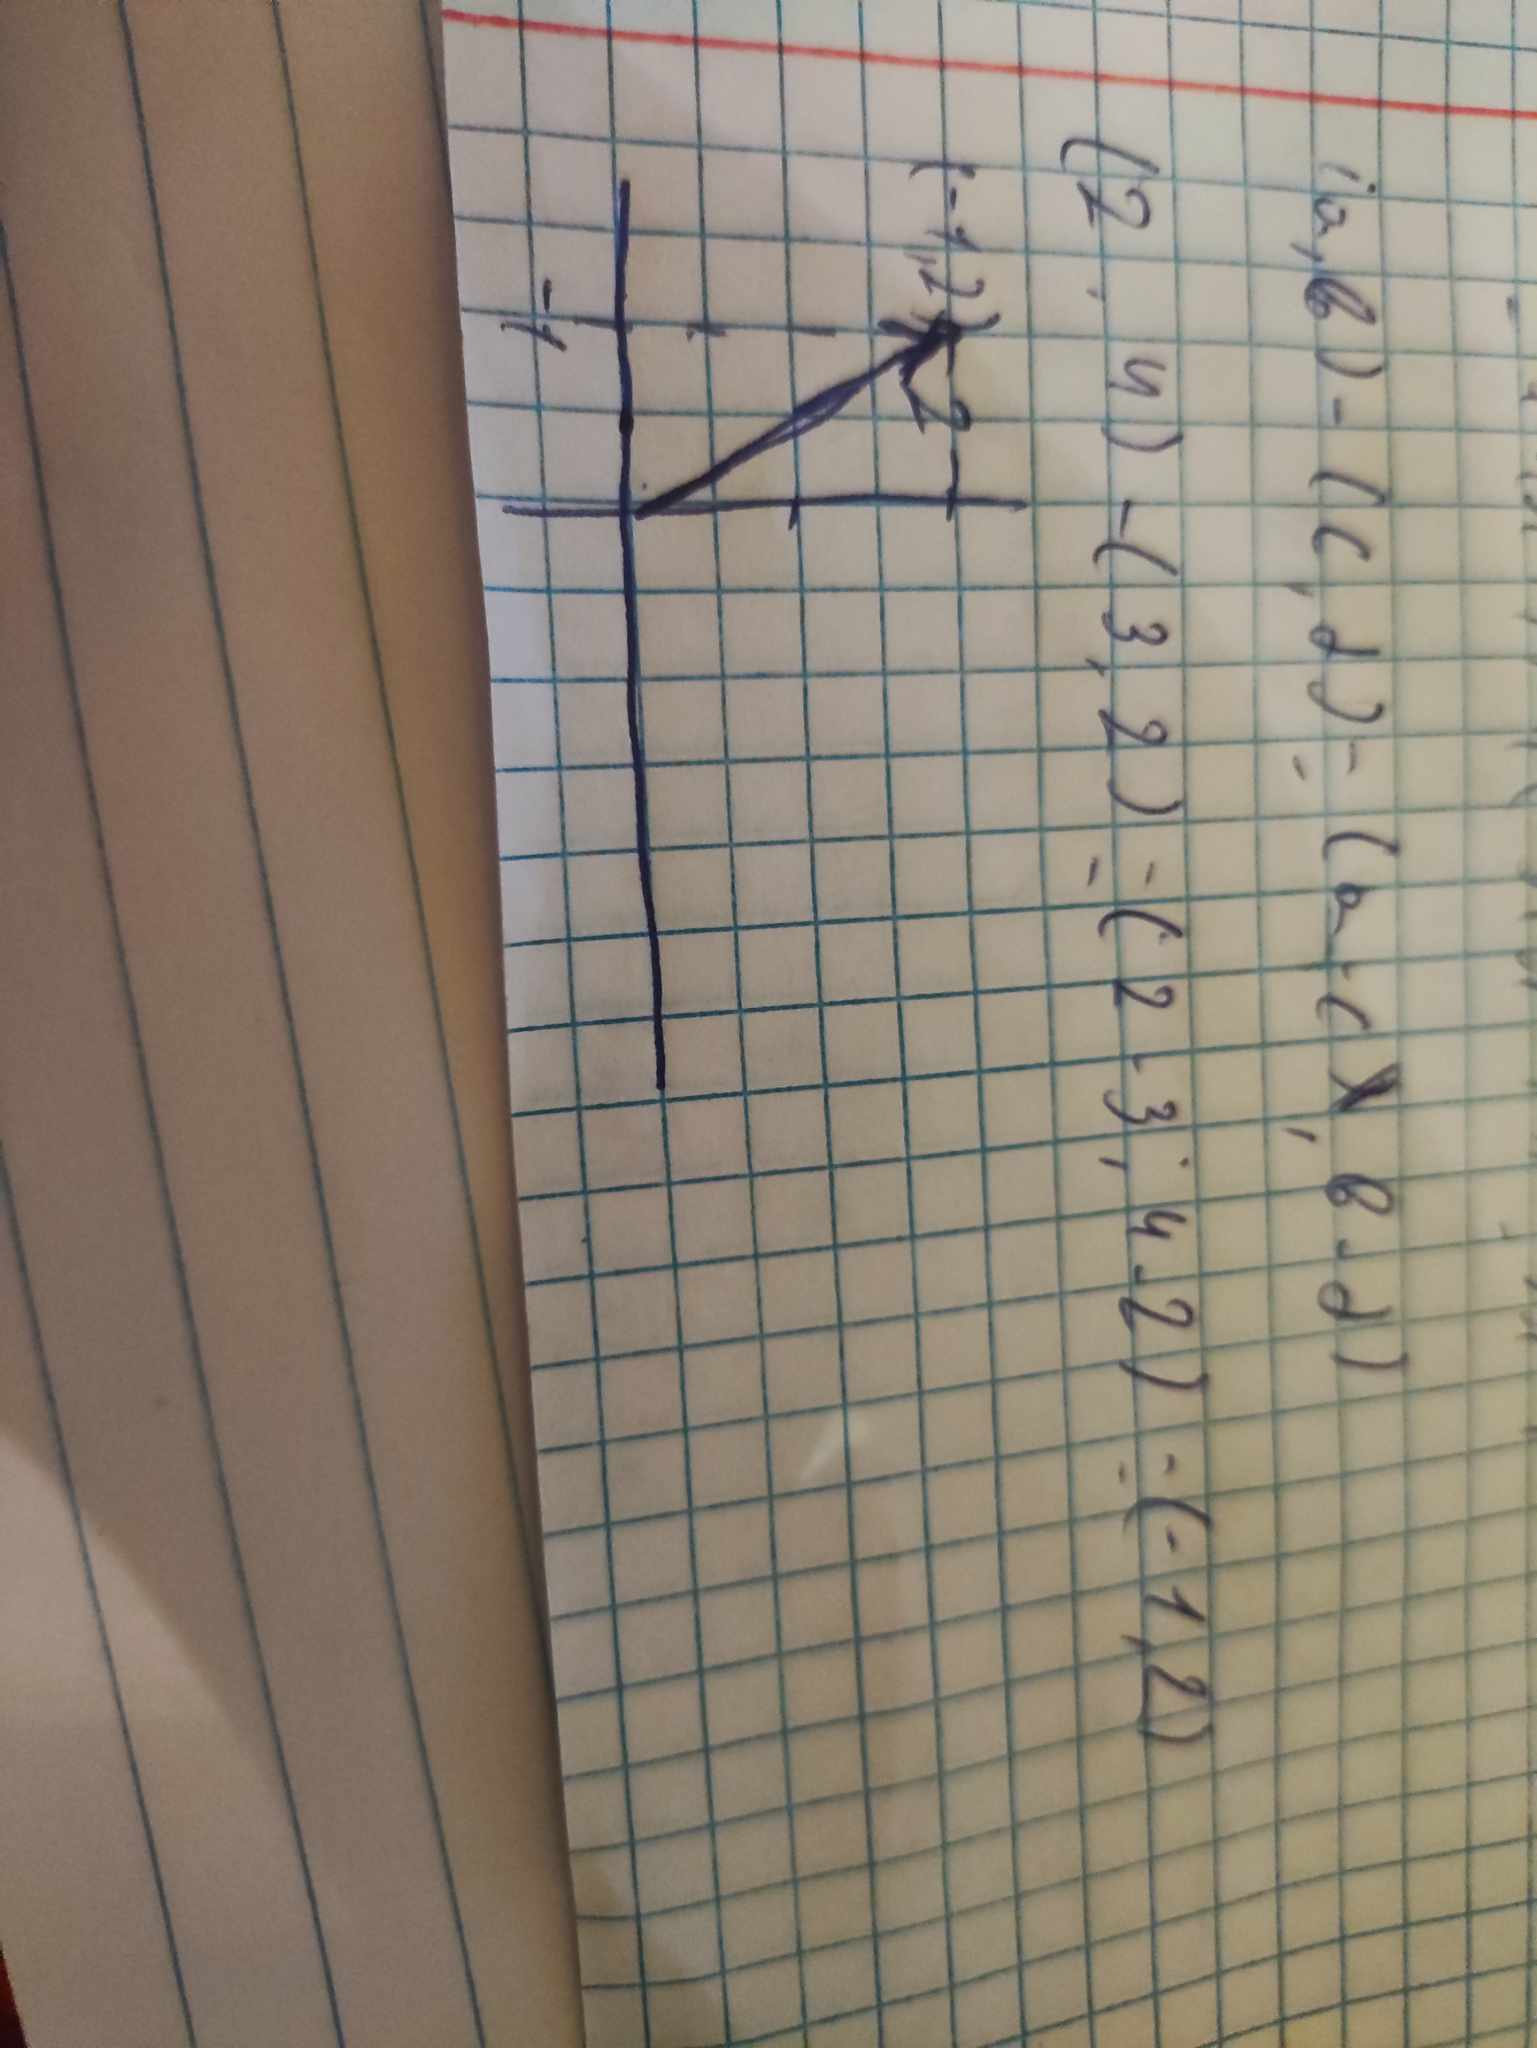 (a, b) - (c, d) = (a - c, b - d)
(2, 4) - (3, 2) = (2 - 3; 4 - 2) = (-1, 2)
(-1, 2) 2
-1